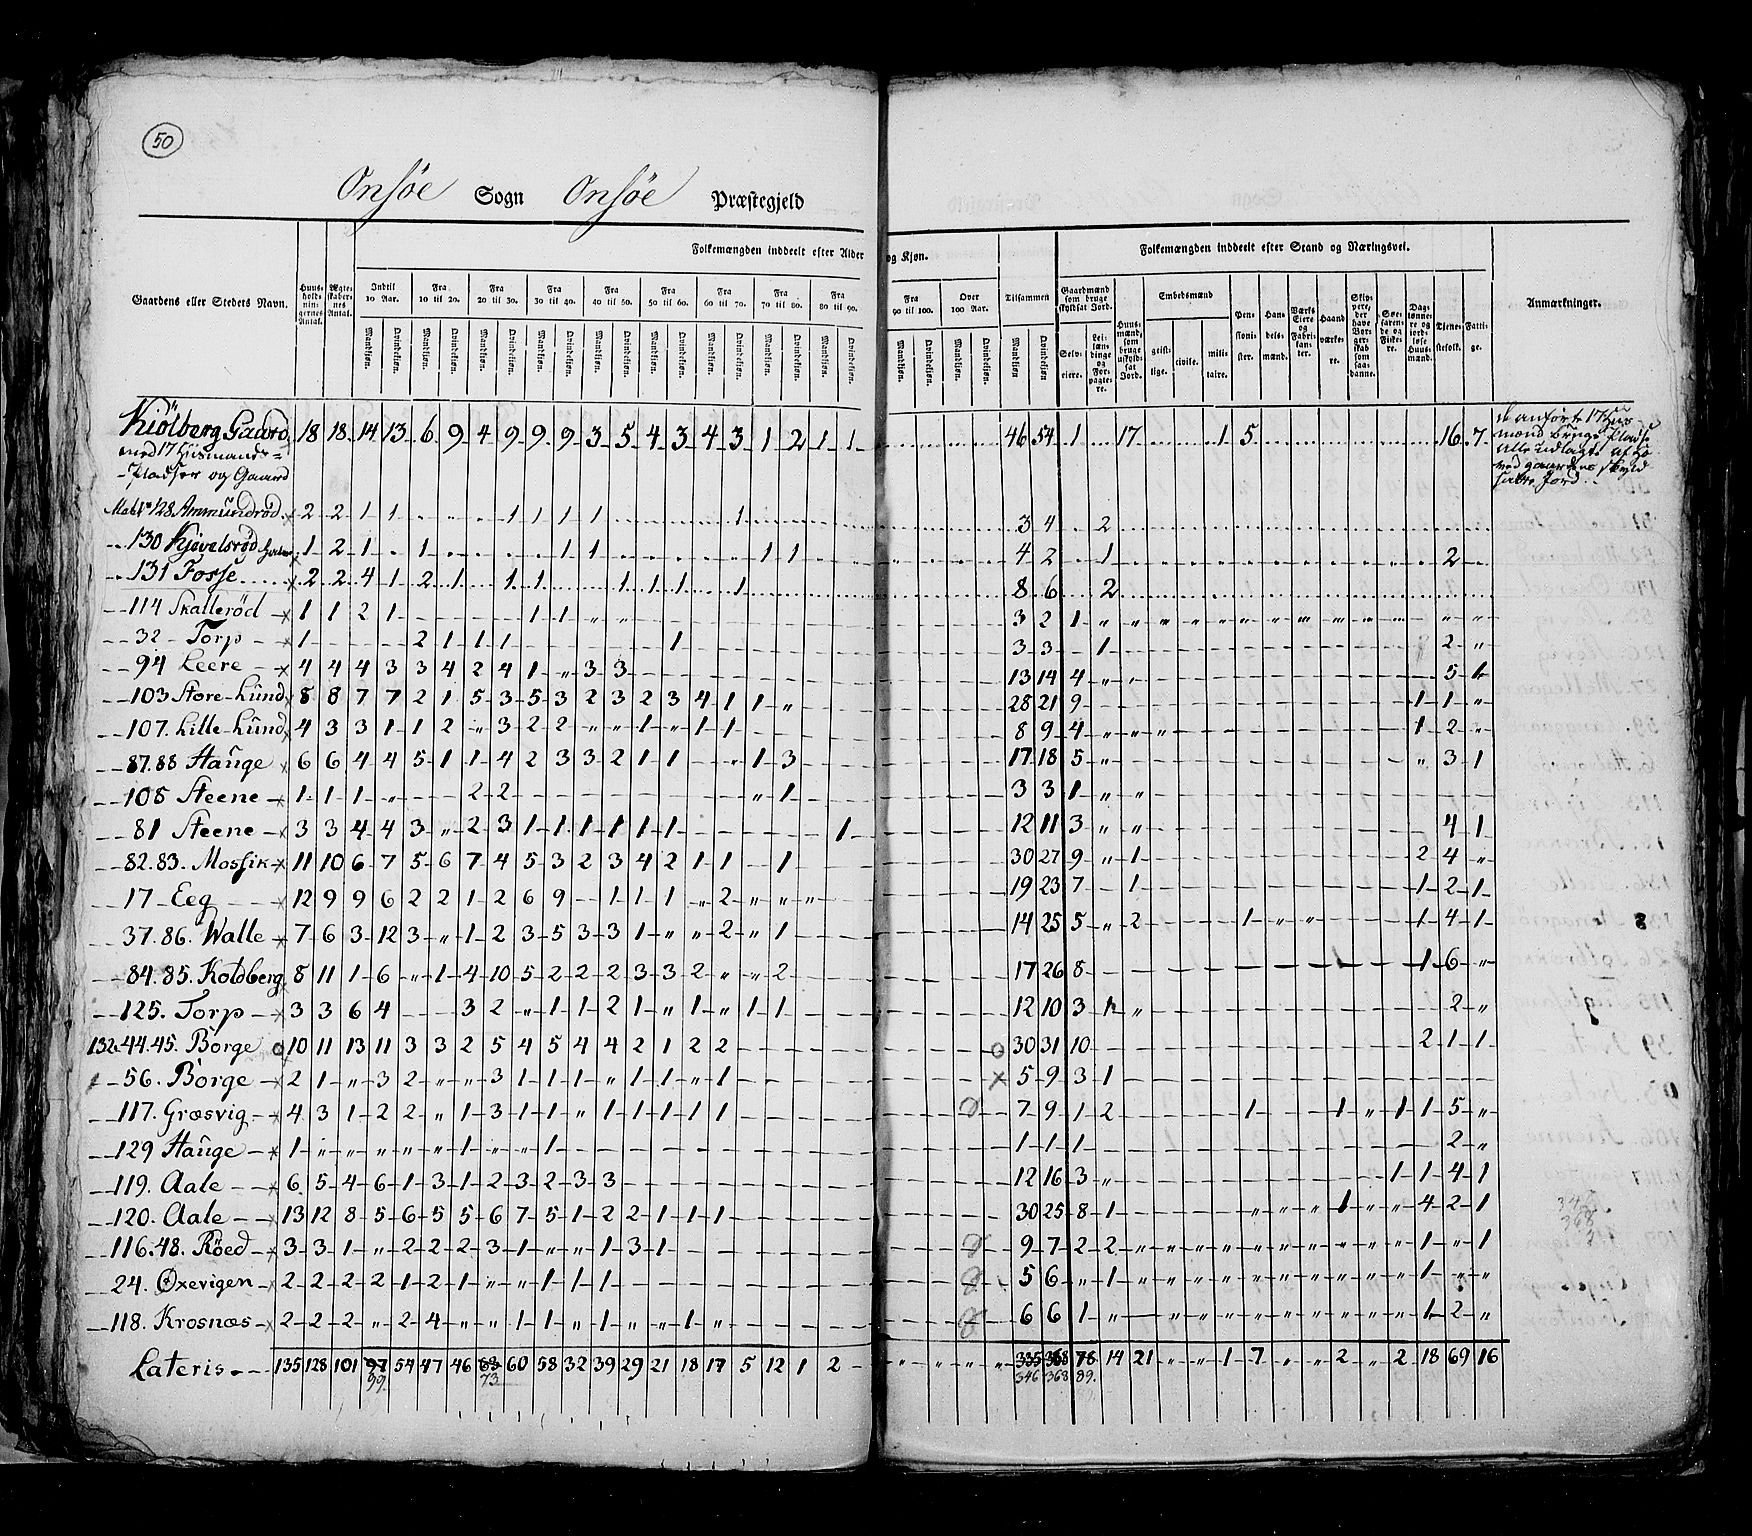 50
Onsöe Sogn Onsöe Præstegjeld
Folkemængden inddeelt efter Alder og Kjøn.
Folkemængden inddeelt efter Stand og Næringsvei.
Gaardens eller Steders Navn.
Huusholdningernes Antal.
Ægteskabernes Antal.
Indtil 10 Aar.
Fra 10 til 20.
Fra 20 til 30.
Fra 30 til 40.
Fra 40 til 50.
Fra 50 til 60.
Fra 60 til 70.
Fra 70 til 80.
Fra 80 til 90.
Fra 90 til 100.
Over 100 Aar.
Tilsammen
Mandkjøn. Qvindekjøn.
Gaardmænd som bruge skyldsat Jord.
Selveiere.
Leilændinge og Forpagtere.
Huusmænd, som bruge uskyldsat Jord.
Embedsmænd
geistlige. civile. militaire.
Pensionister.
Handelsmænd.
Værks Eiere og Fabrikanter.
Haandværkere.
Skippere, der have Borgerskab som saadanne.
Søefarende og Fiskere.
Daglønnere og jordløse Huusmænd.
Tjenestefolk.
Fattige.
Anmærkninger.
Kiölberg Gaard 18 18 14 13 6 9 4 9 9 9 3 5 4 3 4 3 1 2 1 1 46 54 1 17 1 5 16 7
med 17 Huusmands-
Pladser og Gaard
de anførte 17 Huus-
mænd bruge Pladse
alle udlagte af Ho-
vedgaardens skyld
satte Jord.
Mat. No 128 Ammundrød x 2 2 1 1 1 1 1 1 1 3 4 2
130 Kjøvelsrød x 1 2 1 1 1 1 1 1 4 2 1 2
131 Fosse x 2 2 4 1 2 1 1 1 1 1 1 1 8 6 2
114 Skallerød x 1 1 2 1 1 1 3 2 1
32 Torp x 1 2 1 1 1 1 3 3 1 2 "
94 Leere x 4 4 4 3 3 4 2 4 1 " 3 3 13 14 4 " 5 1
103 Store-Lund x 8 8 7 7 2 1 5 3 5 3 2 3 2 3 4 1 1 " 28 21 9 1 1 "
107. Lille-Lund x 4 3 3 1 1 2 " 3 2 2 " " 1 " 1 1 8 9 4 " " " 1 2 "
87.88 Hauge x 6 6 4 4 5 1 1 4 2 3 3 2 1 1 " 1 3 17 18 5 " " 3 1
108 Steene x 1 1 1 " 2 2 " 1 3 3 1 " "
81 Steene x 3 3 4 4 3 " 2 3 1 1 1 1 1 1 1 12 11 3 " " 4 1
82.83. Mossik x 11 10 6 7 5 6 7 4 5 3 2 3 4 2 1 1 1 30 27 9 " 1 2 4 "
17 Eeg x 12 9 9 6 2 2 1 2 6 9 1 1 1 " 2 " " " 19 23 7 1 1 2 1
37.86. Walle x 7 6 3 12 3 " 1 2 3 5 3 3 1 " " 2 " 1 14 25 5 " 2 1 " " 1 4 1
84.85. Koldberg 8 11 1 6 " 1 4 10 5 2 2 2 3 3 2 " " 2 17 26 8 1 6 "
125. Torp x 3 3 6 4 3 2 " 1 1 2 1 " 1 " 1 1 12 10 3 1 " 2 "
132. 44.45. Borge o 10 11 13 11 3 3 2 5 4 5 4 4 2 1 2 2 o 30 31 10 2 1 1
56. Borge x 2 1 " 3 2 " " 3 1 1 1 " 1 1 " 1 x 5 9 3 1
117. Græsvig x 4 3 1 2 2 " 1 3 1 1 " 1 1 1 1 1 7 9 1 2 1 1 " 1 1 5 "
129 Hauge x 1 " " " " " 1 " " 1 1 1 1 2 "
119. Aale x 6 5 4 6 1 3 1 2 3 2 3 3 12 16 3 " 1 1 4 1
120. Aale x 13 12 8 5 6 5 5 6 7 5 1 2 2 1 1 1 30 25 8 1 " " " 1 " " 4 2 1
116.48. Röed x 3 3 1 " 2 2 2 3 1 " " 1 3 1 9 7 2 2 " " " " " " " " " " 1 " 1
24. Oxevigen x 2 2 2 2 1 2 1 " " 1 1 1 5 6 " 1 " " " " " " " " " " 1 " "
118. Krosnæs x 2 2 2 " 2 4 " " 1 1 " 1 " " 1 " 6 6 1 " " " " " " " " " " 1 2 "
Lateris 135 128 101 97 54 47 46 83 60 58 32 39 29 21 18 17 5 12 1 2 " " " " 335 368 78 14 21 " " 1 7 " " 2 " 2 18 69 16
99. 73 346 368 89.